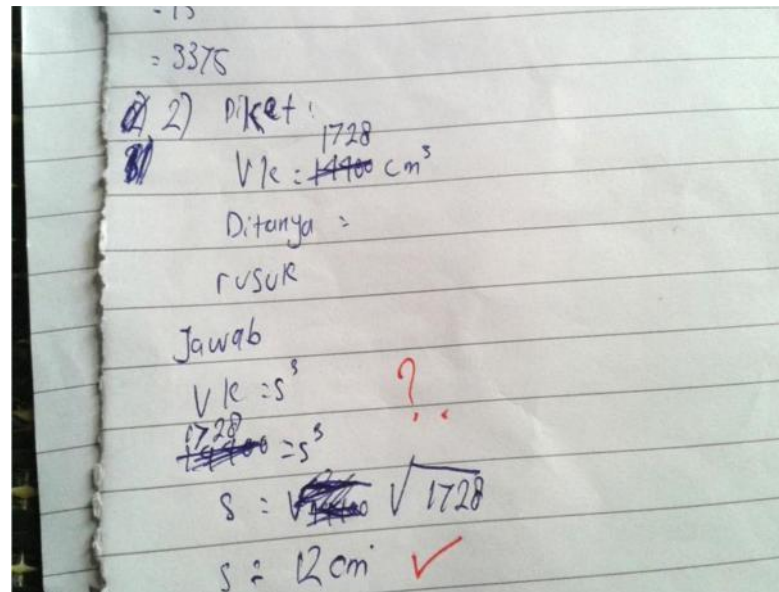 = 15
= 3375
2) Diket :
1728
Vk = 14400 cm³
Ditanya :
rusuk
Jawab
Vk = s³
?
1728
= s³
s = √1728
s = 12 cm ✓